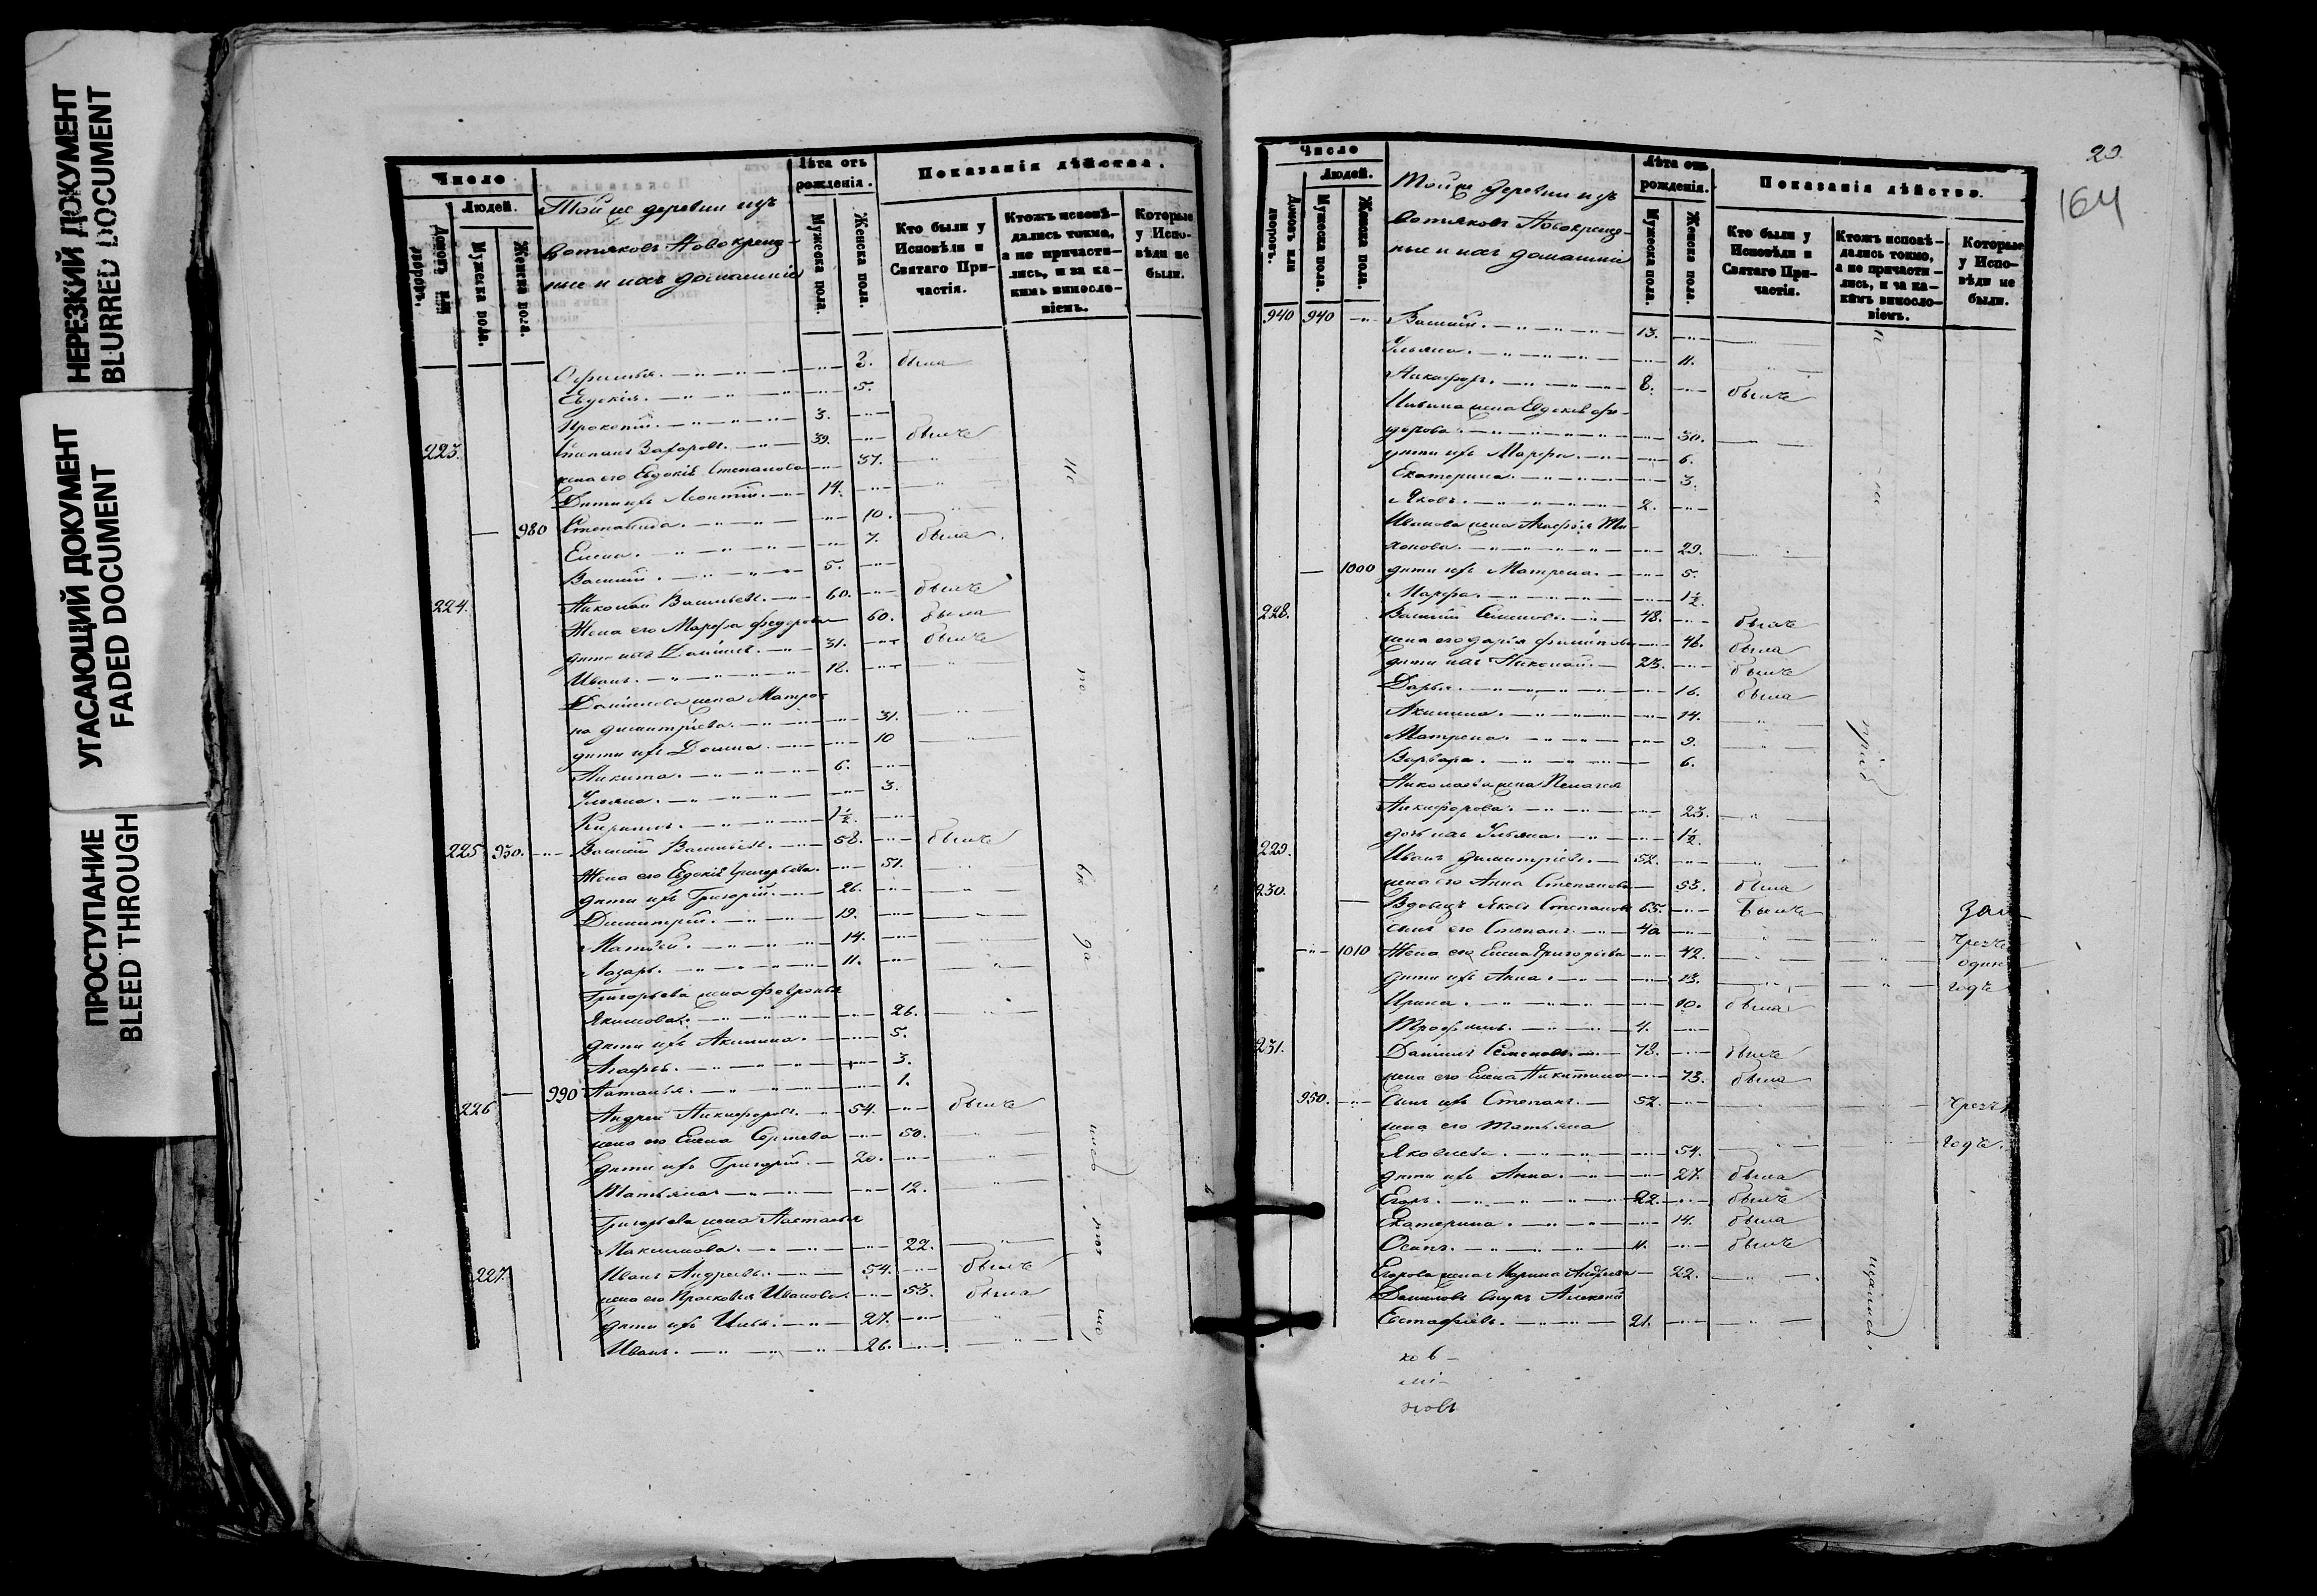 НЕРЕЗКИЙ ДОКУМЕНТ
BLURRED DOCUMENT
УГАСАЮЩИЙ ДОКУМЕНТ
FADED DOCUMENT
ПРОСТУПАНИЕ
BLEED THROUGH
Число
Людей.
Домовъ или дворовъ.
Мужеска пола.
Женска пола.
Той же деревни изъ
вотяковъ Новокреще-
ные и ихъ домашніе
Лѣта отъ рожденія.
Мужеска пола.
Женска пола.
Показанія дѣйства.
Кто были у
Исповѣди и
Святаго При-
частія.
Ктожъ исповѣ-
дались токмо,
а не причасти-
лись, и за ка-
кимъ винословіемъ.
Которые
у Испо-
вѣди не
были.
7. была
Евдокія. 5.
Прокопій. 3.
223. Степанъ Захаровъ. 39. былъ
жена его Евдокія Степанова 37.
Дѣти ихъ Леонтій. 14.
980 Степанида. 10.
Елена. 7. была
Василій. 5.
224. Николай Васильевъ. 60. былъ
Жена его Марфа Федорова 60. была
дѣти ихъ Даніилъ. 31. былъ
Иванъ. 18.
Даніилова жена Матро-
на Димитріева. 31.
дѣти ихъ Домна. 10
Никита. 6.
Ульяна. 3.
Кирилъ. 1½.
225 930. Василій Васильевъ. 58. былъ
Жена его Евдокія Григорьева. 51.
дѣти ихъ Григорій. 26.
Димитрій. 19.
Матвей. 14.
Лазарь. 11.
Григорьева жена Февронья
Якимова. 26.
дѣти ихъ Акилина. 5.
Агафья. 3.
990 Наталья. 1.
226 Андрей Никифоровъ. 54. былъ
жена его Елена Сергѣева 50.
дѣти ихъ Григорій. 20.
Татьяна 12.
Григорьева жена Настасья
Максимова. 22.
227. Иванъ Андреевъ. 54. былъ
жена его Прасковья Иванова. 53. была
дѣти ихъ Илья. 27.
Иванъ. 26.
20.
164
Число
Людей.
Домовъ или дворовъ.
Мужеска пола.
Женска пола.
Той же деревни изъ
вотяковъ Новокреще-
ные и ихъ домашніе
Лѣта отъ рожденія.
Мужеска пола.
Женска пола.
Показанія дѣйства.
Кто были у
Исповѣди и
Святаго При-
частія.
Ктожъ исповѣ-
дались токмо,
а не причасти-
лись, и за ка-
кимъ винословіемъ.
Которые
у Испо-
вѣди не
были.
940 940 Василій. 13.
Ульяна. 11.
Никифоръ. 8. былъ
Ильина жена Евдокія Фе-
дорова. 30.
дѣти ихъ Марфа. 6.
Екатерина. 3.
Яковъ. 2.
Иванова жена Агафья Ти-
хонова. 29.
1000 дѣти ихъ Матрена. 5.
Марфа. 1½.
228. Василій Семеновъ. 48. былъ
жена его Дарія Филипова 46. была
дѣти ихъ Николай. 23. былъ
Дарья. 16. была
Акилина. 14.
Матрена. 9.
Варвара. 6.
Николаева жена Пелагея
Никифорова. 23.
дочь ихъ Ульяна. 1½.
229. Иванъ Димитріевъ. 52.
жена его Анна Степанова 53. была
230. Вдовецъ Яковъ Степановъ 65. былъ
сынъ его Степанъ. 40
1010 Жена его Елена Григорьева 42.
дѣти ихъ Анна. 13.
Ирина. 10. была
Трофимъ. 4.
231. Даніилъ Семеновъ. 78. былъ
жена его Елена Никитина 73. была
950. Сынъ ихъ Степанъ. 52.
жена его Татьяна
Яковлева. 54.
дѣти ихъ Анна. 27. была
Егоръ. 22. былъ
Екатерина. 14. была
Осипъ. 11. былъ
Егорова жена Марина Андреева 22.
Даниловъ внукъ Алексей
Евстафіевъ. 21.
чрезъ
одинъ
годъ
чрезъ
годъ.